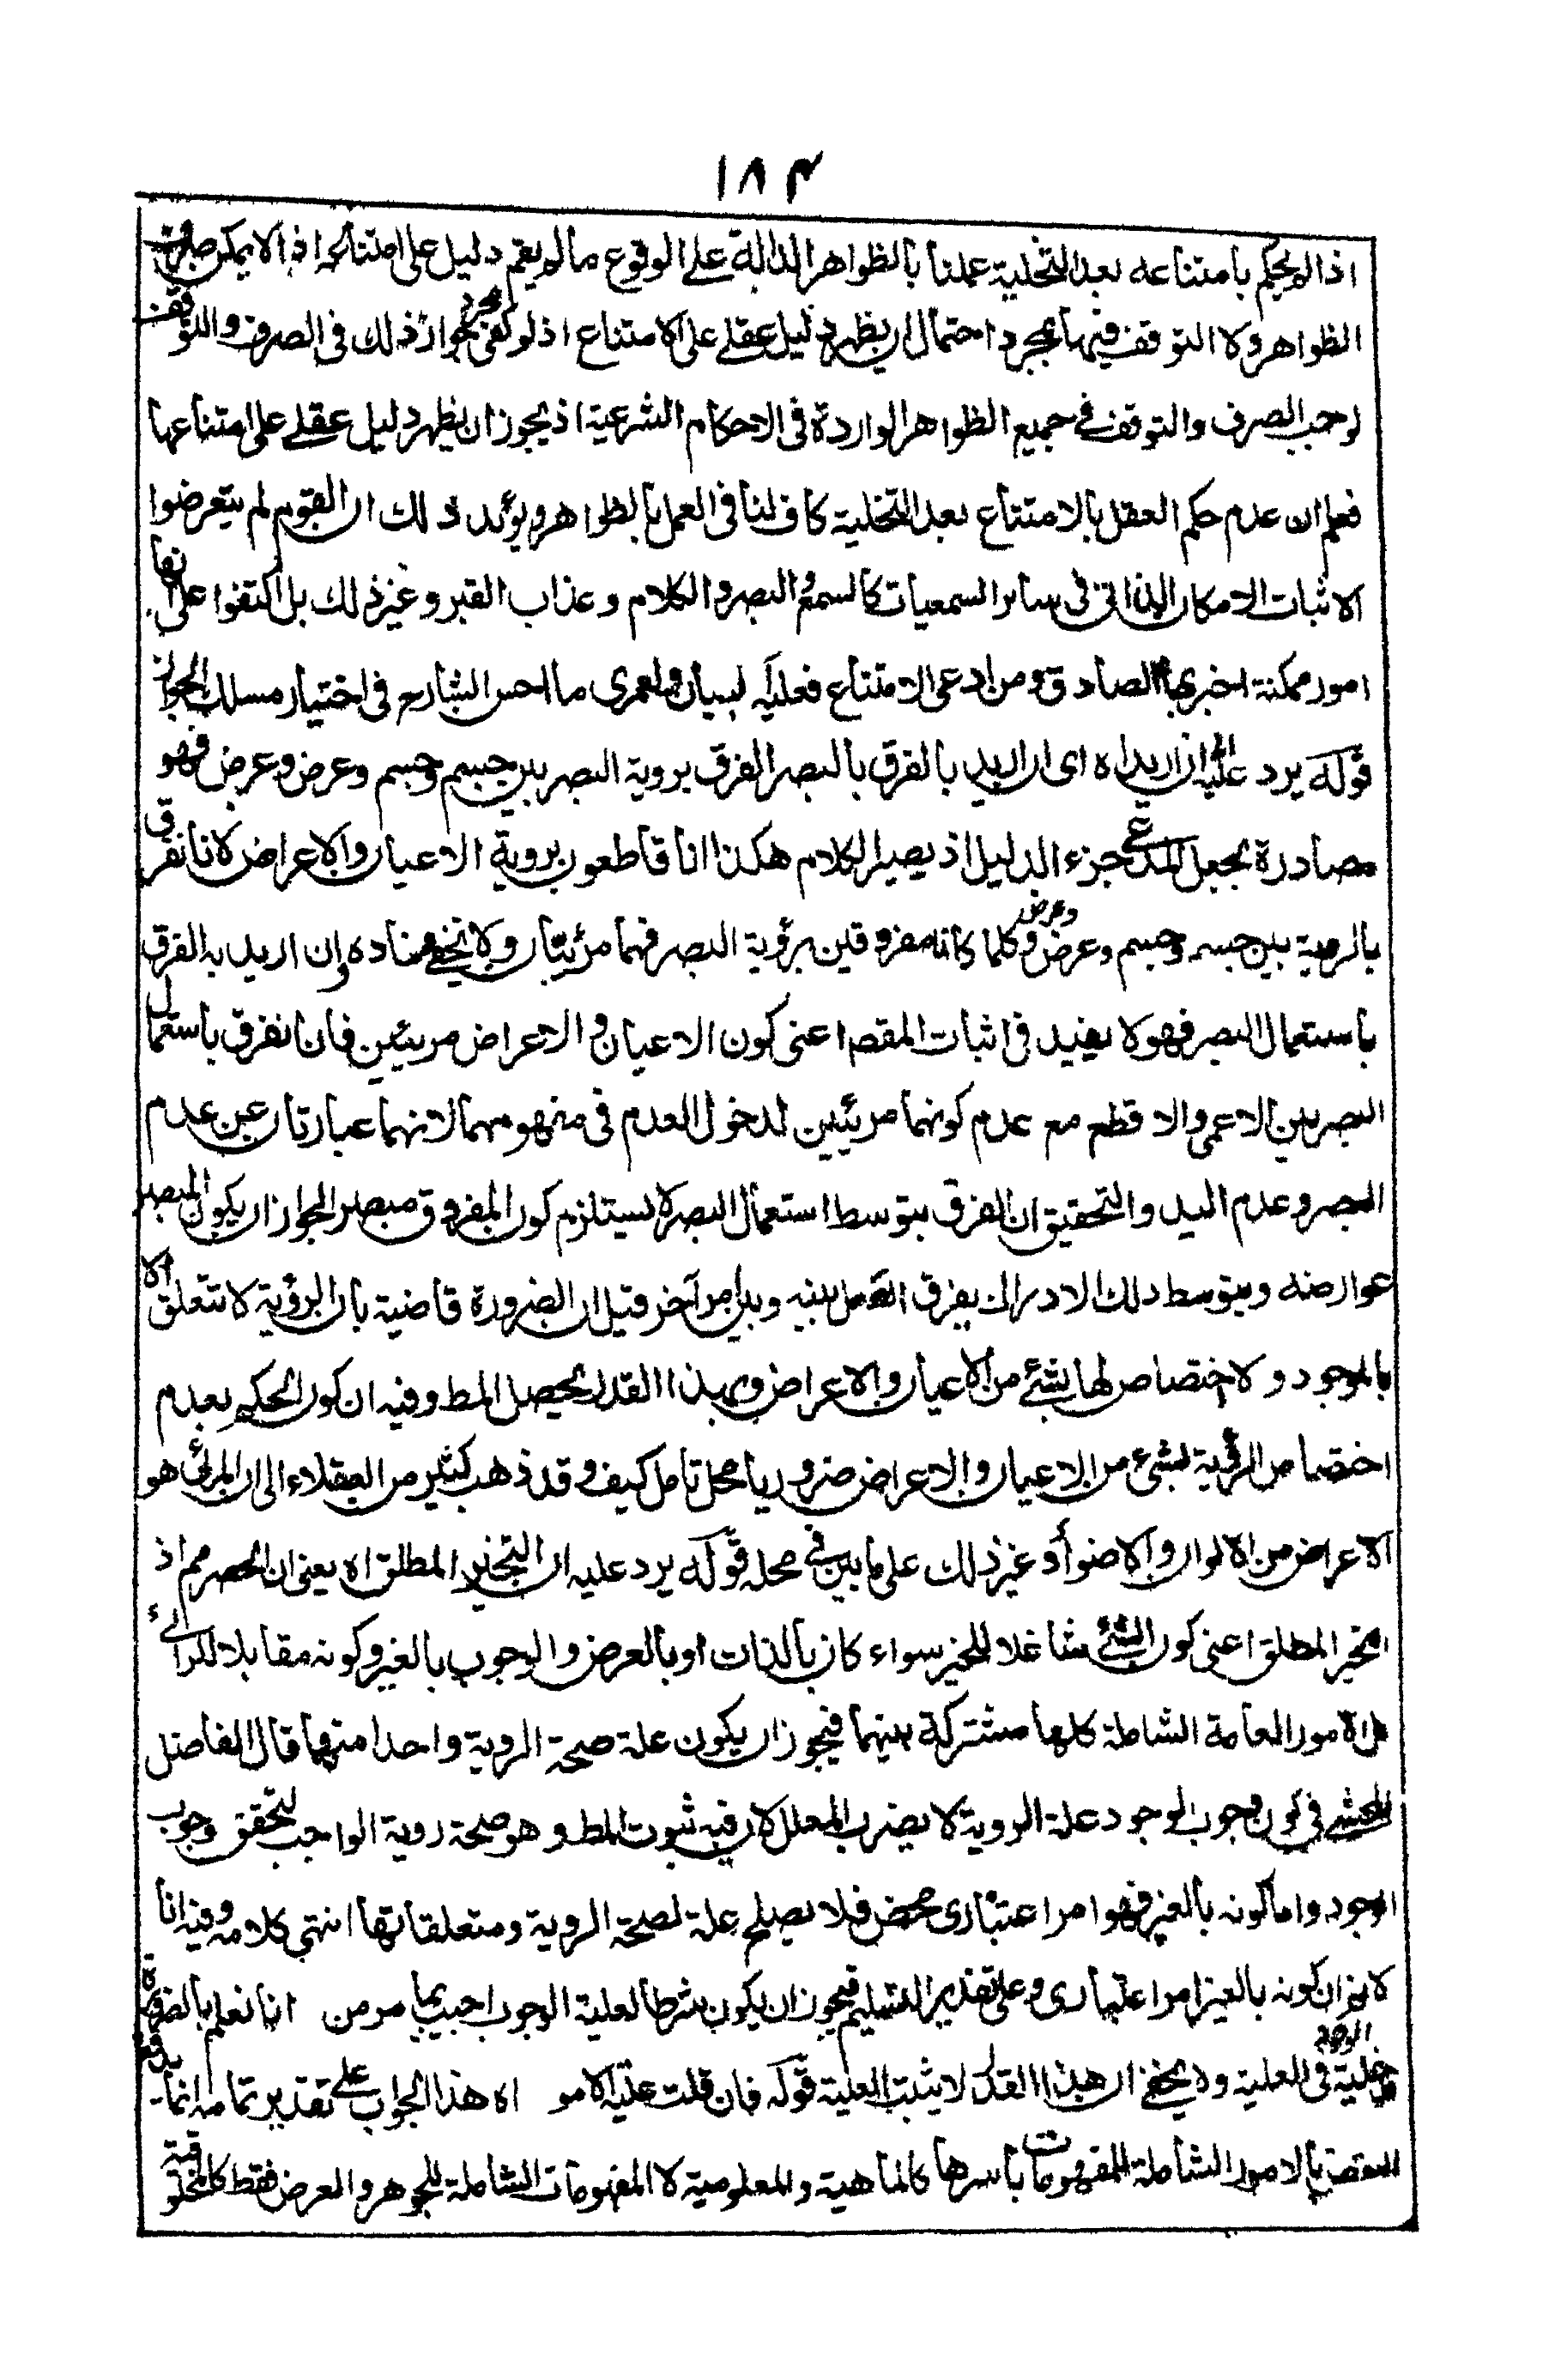 ۱۸۴
اذا لم يحكم بامتناعه بعد التخلية عملنا بالظواهر الدالة على الوقوع ما لم يقم دليل على امتناعه اذ لا يمكن صرف
الظواهر ولا التوقف فيها بمجرد احتمال ان يظهر دليل عقلے على الامتناع اذ لو كفى مجرد جواز ذلك فى الصرف والتوقف
لوجب الصرف والتوقف فے جميع الظواهر الواردة فى الاحكام الشرعية اذ يجوز ان يظهر دليل عقلے على امتناعها
فعلم ان عدم حكم العقل بالامتناع بعد التخلية كاف لنا فى العمل بالظواهر ويؤيد ذلك ان القوم لم يتعرضوا
الاثبات الامكان الذاتى فى سائر السمعيات كالسمع والبصر والكلام وعذاب القبر وغير ذلك بل اكتفوا على انها
امور ممكنة اخبر بها الصادق ومن ادعى الامتناع فعليه البيان ولعمرى ما احسن الشارح فى اختيار مسلك الجواز
قوله يرد عليه انه ان اريد اه اى ان اريد بالفرق بالبصر الفرق بروية البصر بين جسم وجسم وعرض وعرض فهو
مصادرة بجعل المدعى جزء الدليل اذ يصير الكلام هكذا انا قاطعون بروية الاعيان والاعراض لانا نفرق
بالروية بين جسم وجسم وعرض وعرض وكلما كانا مفروقين برؤية البصر فهما مرئيان ولا يخفى فساده وان اريد به الفرق
باستعمال البصر فهو لا يفيد فى اثبات المقصم اعنى كون الاعيان والاعراض مرئيين فان نفرق باستعمال
البصر بين الاعمى والاقطع مع عدم كونهما مرئيين لدخول العدم فى مفهومهما لانهما عبارتان عن عدم
البصر وعدم اليد والتحقيق ان الفرق بتوسط استعمال البصر لا يستلزم كون المفروق مبصرا لجواز ان يكون المبصر
عوارضه وبتوسط ذلك الادراك يفرق العقل بينه وبين امر آخر قيل ان الضرورة قاضية بان الرؤية لا تتعلق الا
بالموجود ولا اختصاص لها بشئ من الاعيان والاعراض وبهذا القدر يحصل المط وفيه ان كون الحكم بعدم
اختصاص الرؤية بشئ من الاعيان والاعراض ضروريا محل تامل كيف وقد ذهب كثير من العقلاء الى ان المرئى هو
الاعراض من الالوان والاضواء وغير ذلك على ما بين فى محله قوله يرد عليه ان التحيز المطلق اه يعنى ان الحصر مم اذ
التحيز المطلق اعنى كون الشئ شاغلا للحيز سواء كان بالذات او بالعرض والوجوب بالغير وكونه مقابلا للرائى
بل الامور العامة الشاملة كلها مشتركة بينهما فيجوز ان يكون علة صحة الروية واحدا منهما قال الفاضل
المحشے فى كون وجوب الوجود علة الروية لا يضر بالمعلل لان فيه ثبوت المط وهو صحة روية الواجب لتحقق وجوب
الوجود واما كونه بالغير فهو امر اعتبارى محض فلا يصلح علة لصحة الروية ومتعلقاتها انتهى كلامه وفيه انا
لا نم ان كونه بالغير امر اعتبارى وعلى تقدير التسليم فيجوز ان يكون شرطا لعلية الوجوب اجيب بما مر من انا نعلم بالضرورة
مدخلية الوجود فى العلية ولا يخفى ان هذا القدر لا يثبت العلية قوله فان قلت علية الامو اه هذا الجواب على تقدير تمامه انما يدفع
النقض بالامور الشاملة للمفهومات باسرها كالماهية والمعلومية لا المفهومات الشاملة للجوهر والعرض فقط كالمخلوقية